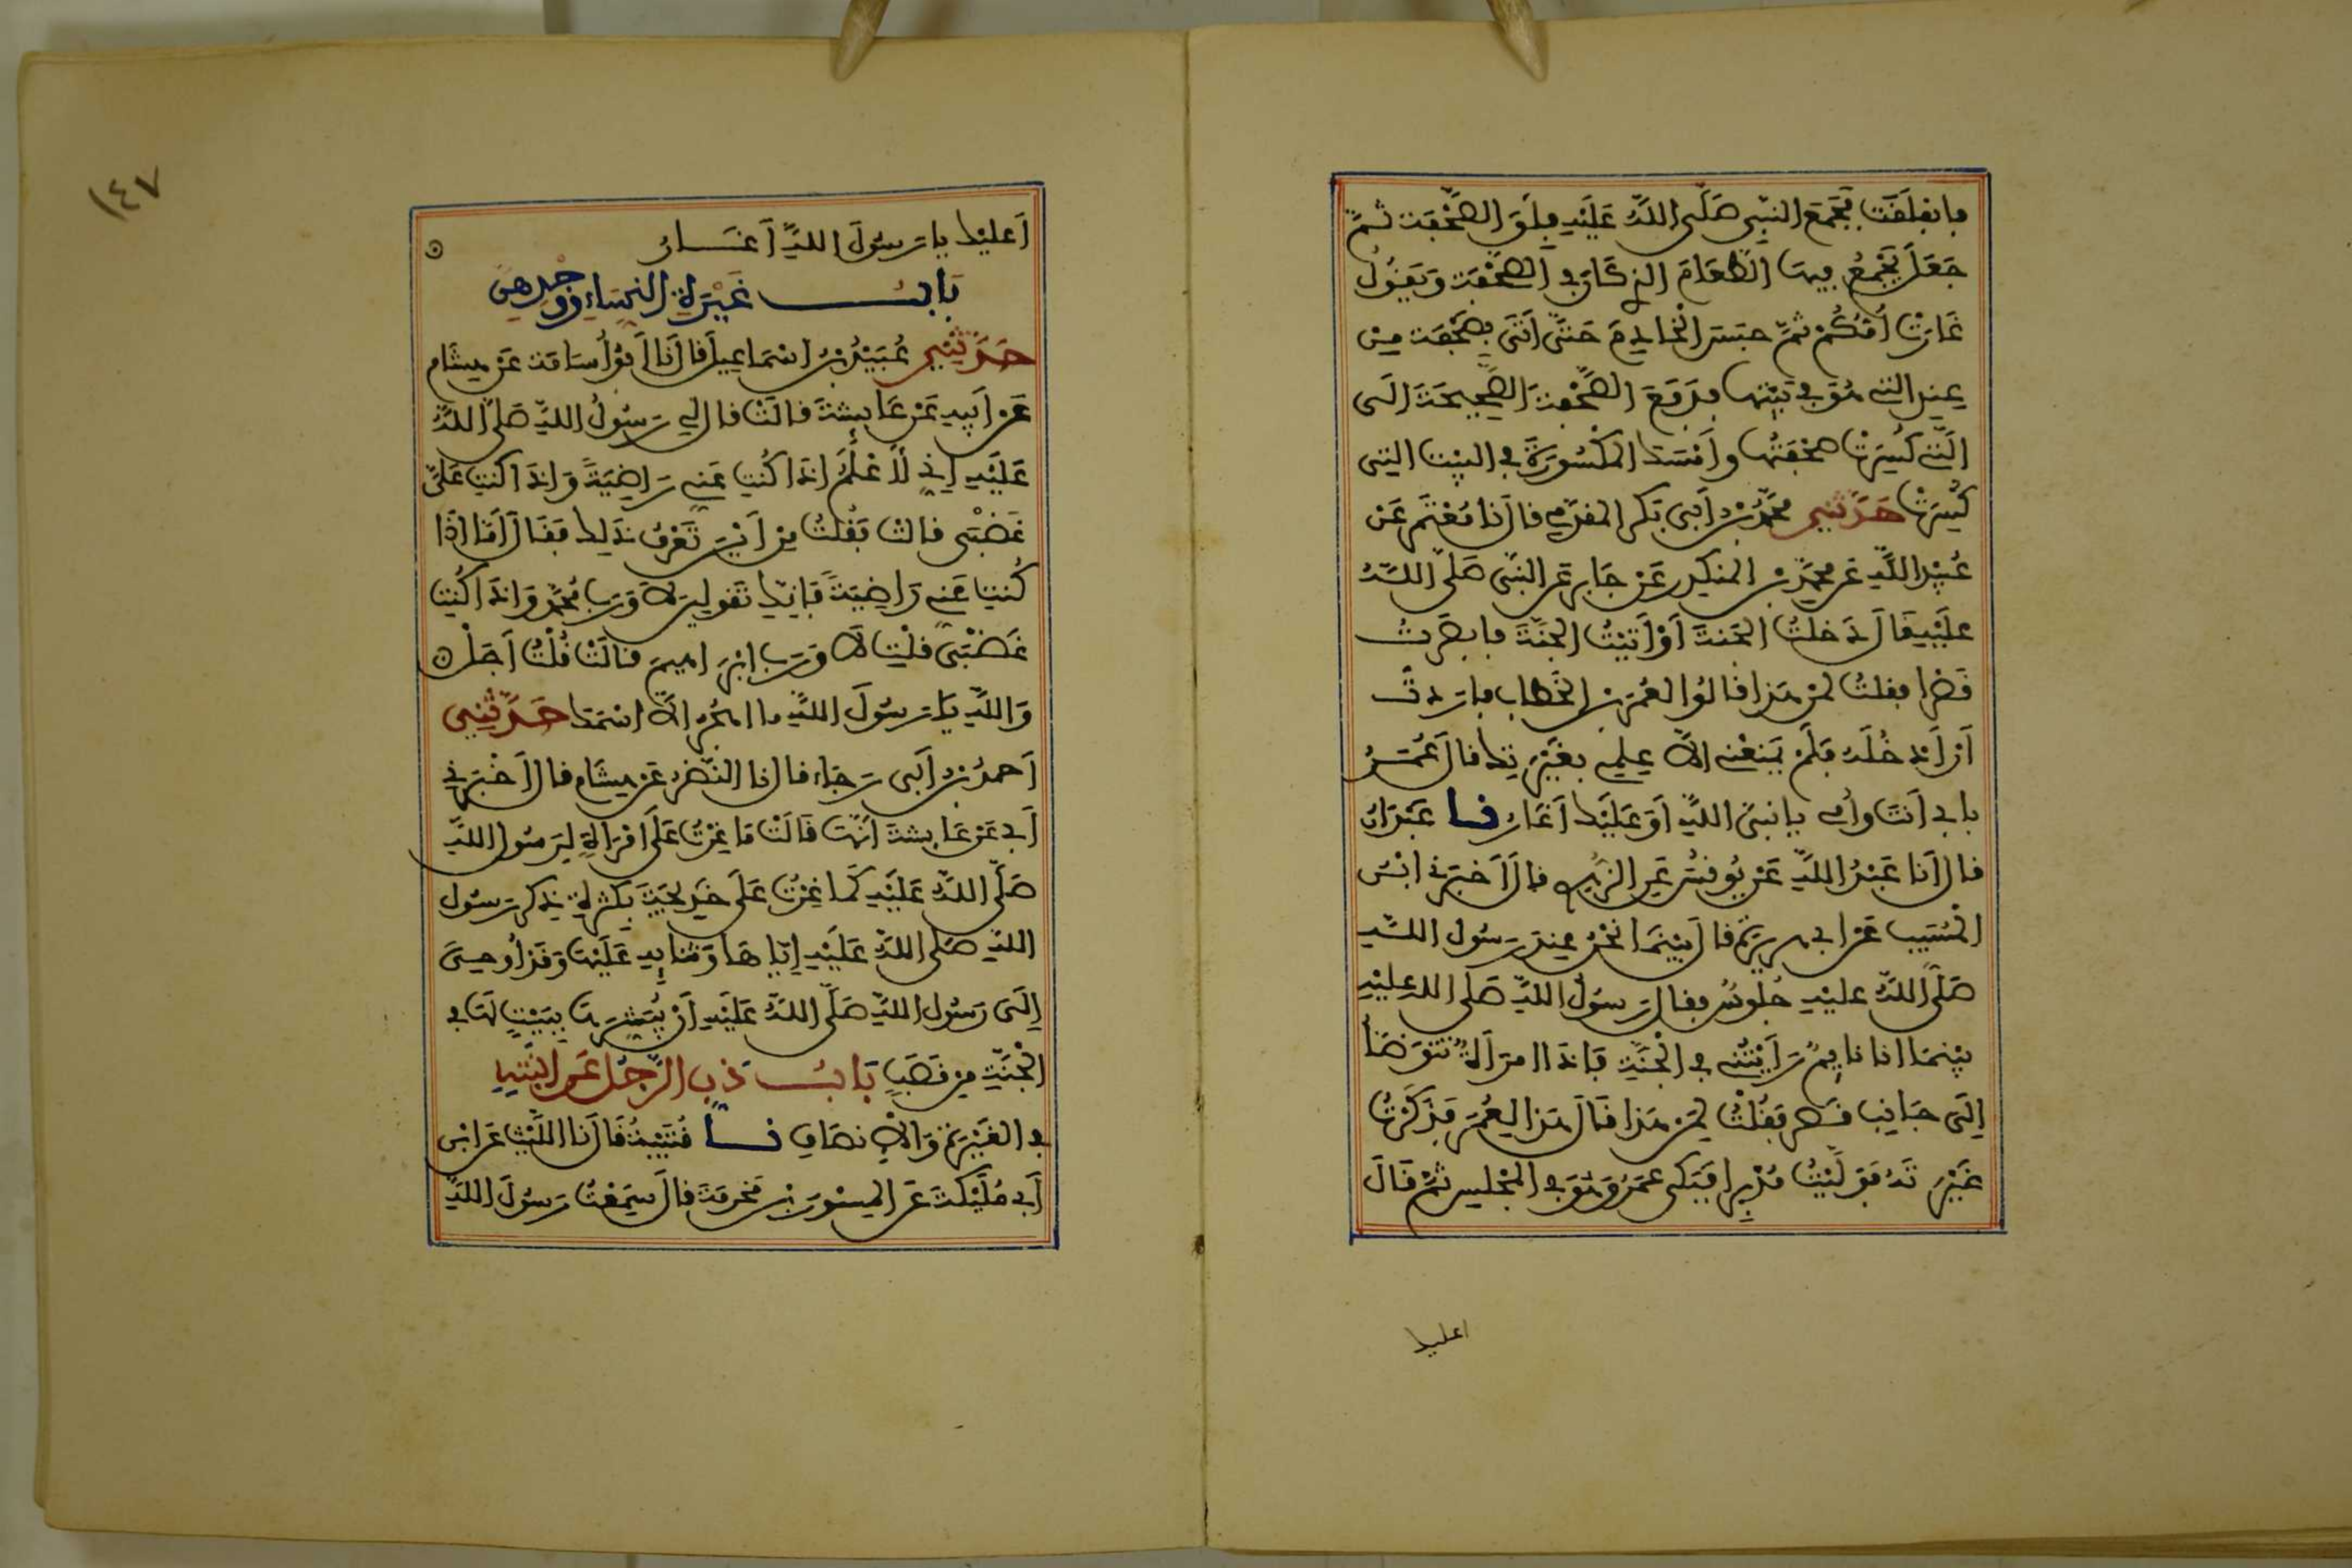 فانفلقت فجمع النبي صلى الله عليه فلق الصحفة ثم
جعل يجمع فيها الطعام الذي كان في الصحفة ويقول
غارت أمكم ثم حبس الخادم حتى أتى بصحفة من
عند التي هو في بيتها فدفع الصحفة الصحيحة الى
التي كسرت صحفتها وأمسك المكسورة في البيت التي
كسرت حدثني محمد بن أبي بكر المقدمي قال نا معتمر عن
عبيد الله عن محمد بن المنكدر عن جابر عن النبي صلى الله
عليه قال دخلت الجنة أو أتيت الجنة فابصرت
قصرا فقلت لمن هذا قالوا لعمر بن الخطاب فاردت
أن أدخله فلم يمنعني الا علمي بغيرتك قال عمر
بابي أنت وأمي يا نبي الله أو عليك أغار نا عبدان
قال أنا عبد الله عن يونس عن الزهري قال أخبرني ابن
المسيب عن ابي هريرة قال بينما نحن عند رسول الله
صلى الله عليه جلوس فقال رسول الله صلى الله عليه
بينما انا نايم رأيتني في الجنة فاذا امرأة تتوضأ
إلى جانب قصر فقلت لمن هذا قال هذا لعمر فذكرت
غيرته فوليت مدبرا فبكى عمر وهو في المجلس ثم قال
اعليك
١٤٧
أعليك يا رسول الله أغار
باب غيرة النساء ووجدهن
حدثني عبيد بن اسماعيل قال نا أبو أسامة عن هشام
عن أبيه عن عايشة قالت قال لي رسول الله صلى الله
عليه إني لأعلم اذا كنت عني راضية واذا كنت علي
غضبى قالت فقلت من أين تعرف ذلك فقال أما اذا
كنت عني راضية فإنك تقولين لا ورب محمد واذا كنت
غضبى قلت لا ورب ابرهيم قالت قلت أجل
والله يا رسول الله ما اهجر الا اسمك حدثني
أحمد بن أبي رجاء قال نا النضر عن هشام قال أخبرني
أبي عن عايشة أنها قالت ما غرت على امرأة لرسول الله
صلى الله عليه كما غرت على خديجة بكثرة ذكر رسول
الله صلى الله عليه إياها وثنايه عليها وقد أوحي
إلى رسول الله صلى الله عليه أن يبشرها ببيت لها في
الجنة من قصب باب ذب الرجل عن ابنته
في الغيرة والانصاف نا قتيبة قال نا الليث عن ابن
أبي مليكة عن المسور بن مخرمة قال سمعت رسول الله